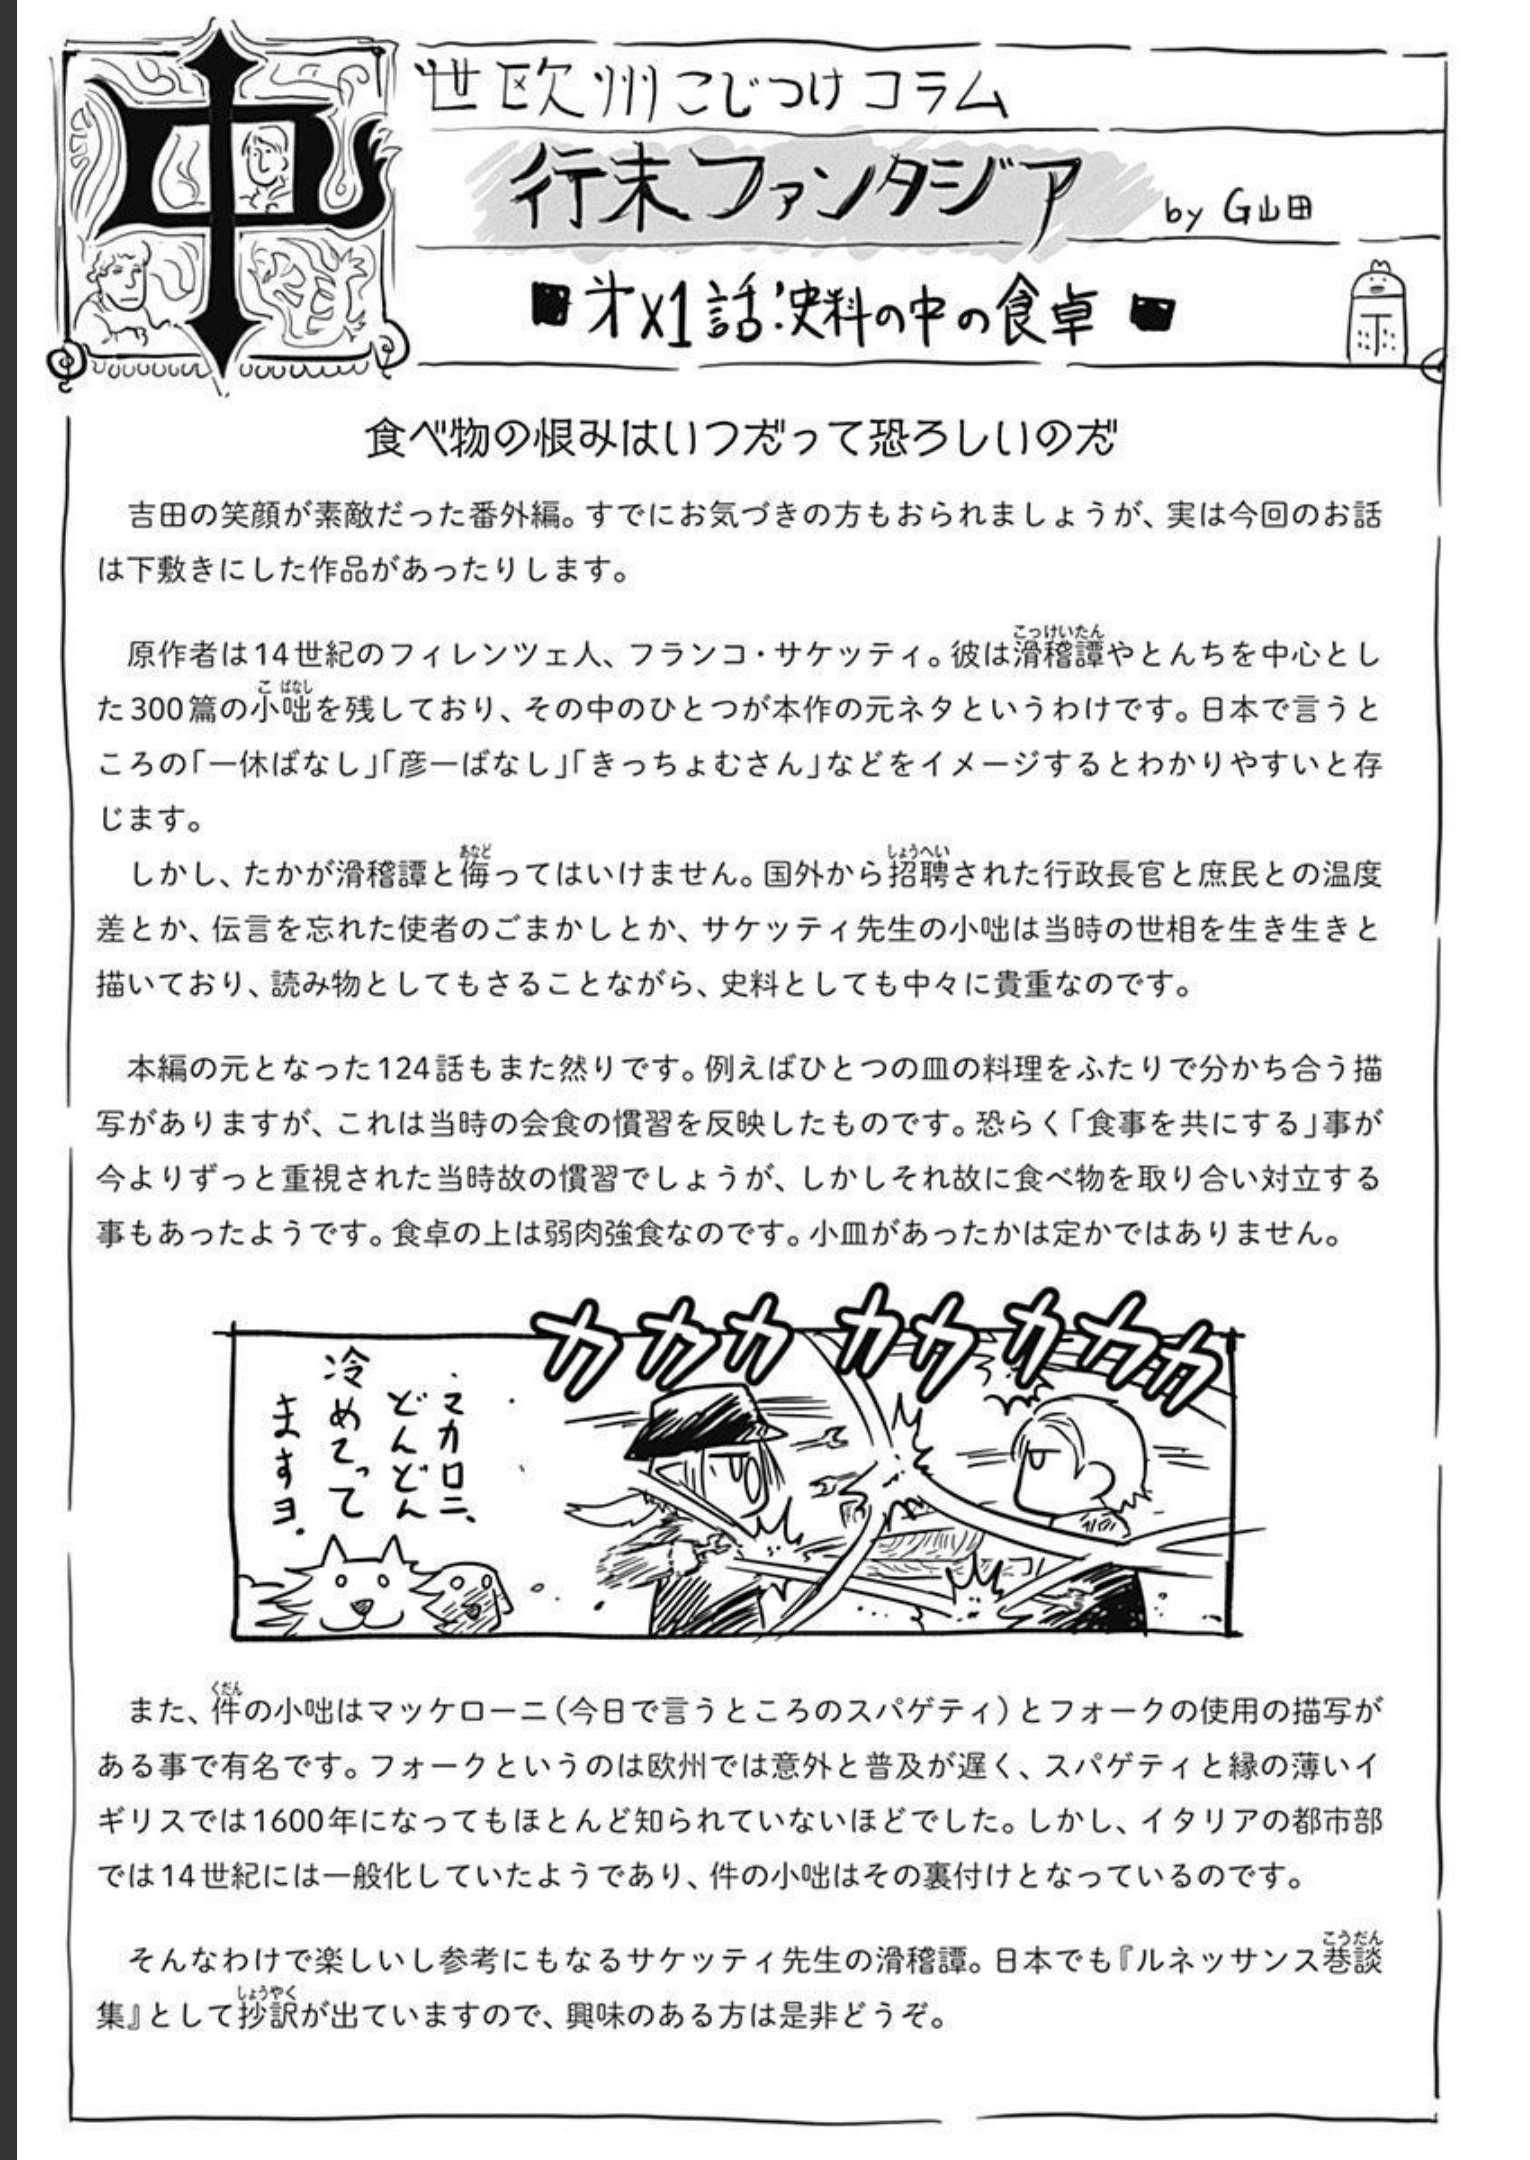 中世欧州こじつけコラム
行末ファンタジア by G山田
■才x1話:史料の中の食卓■
食べ物の恨みはいつだって恐ろしいのだ
吉田の笑顔が素敵だった番外編。すでにお気づきの方もおられましょうが、実は今回のお話
は下敷きにした作品があったりします。
原作者は14世紀のフィレンツェ人、フランコ・サケッティ。彼は滑稽譚やとんちを中心とし
た300篇の小咄を残しており、その中のひとつが本作の元ネタというわけです。日本で言うと
ころの「一休ばなし」「彦一ばなし」「きっちょむさん」などをイメージするとわかりやすいと存
じます。
しかし、たかが滑稽譚と侮ってはいけません。国外から招聘された行政長官と庶民との温度
差とか、伝言を忘れた使者のごまかしとか、サケッティ先生の小咄は当時の世相を生き生きと
描いており、読み物としてもさることながら、史料としても中々に貴重なのです。
本編の元となった124話もまた然りです。例えばひとつの皿の料理をふたりで分かち合う描
写がありますが、これは当時の会食の慣習を反映したものです。恐らく「食事を共にする」事が
今よりずっと重視された当時故の慣習でしょうが、しかしそれ故に食べ物を取り合い対立する
事もあったようです。食卓の上は弱肉強食なのです。小皿があったかは定かではありません。
カカカカカカカカ
マカロニ、
どんどん
冷めてって
ますヨ.
また、件の小咄はマッケローニ(今日で言うところのスパゲティ)とフォークの使用の描写が
ある事で有名です。フォークというのは欧州では意外と普及が遅く、スパゲティと縁の薄いイ
ギリスでは1600年になってもほとんど知られていないほどでした。しかし、イタリアの都市部
では14世紀には一般化していたようであり、件の小咄はその裏付けとなっているのです。
そんなわけで楽しいし参考にもなるサケッティ先生の滑稽譚。日本でも『ルネッサンス巷談
集』として抄訳が出ていますので、興味のある方は是非どうぞ。